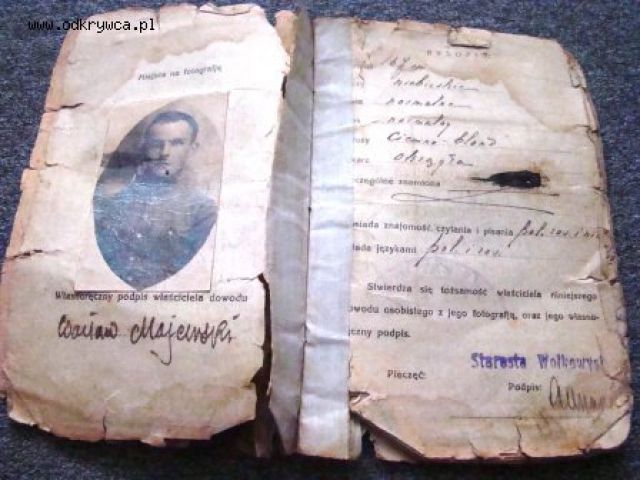 www.odkrywca.pl
Miejsce na fotografję
Własnoręczny podpis właściciela dowodu
Majewski
RYSOPIS
niebieskie
normalne
normalny
ciemno-blond
okrągła
czególne znamiona
iada znajomość czytania i pisania pol. ros. i
ada językami pol. i ros.
Stwierdza się tożsamość właściciela niniejszego
owodu osobistego z jego fotografją, oraz jego własno-
ęczny podpis.
Starosta Wołkowysk
Pieczęć:
Podpis: